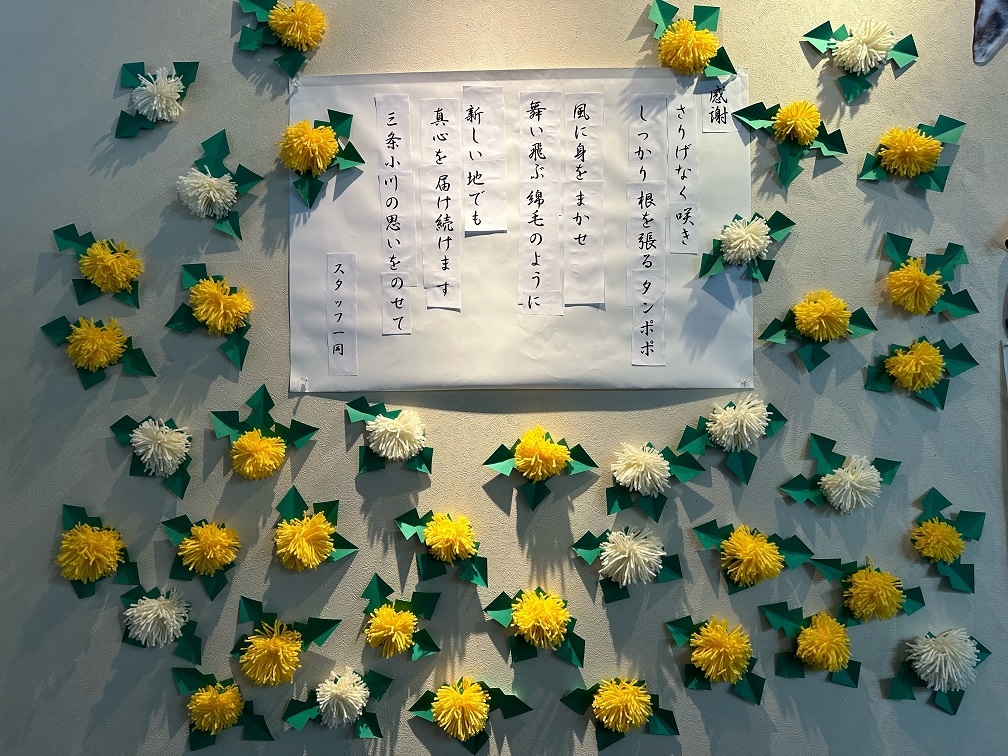 感謝
さりげなく咲き
しっかり根を張るタンポポ
風に身をまかせ
舞い飛ぶ綿毛のように
新しい地でも
真心を届け続けます
三条小川の思いをのせて
スタッフ一同